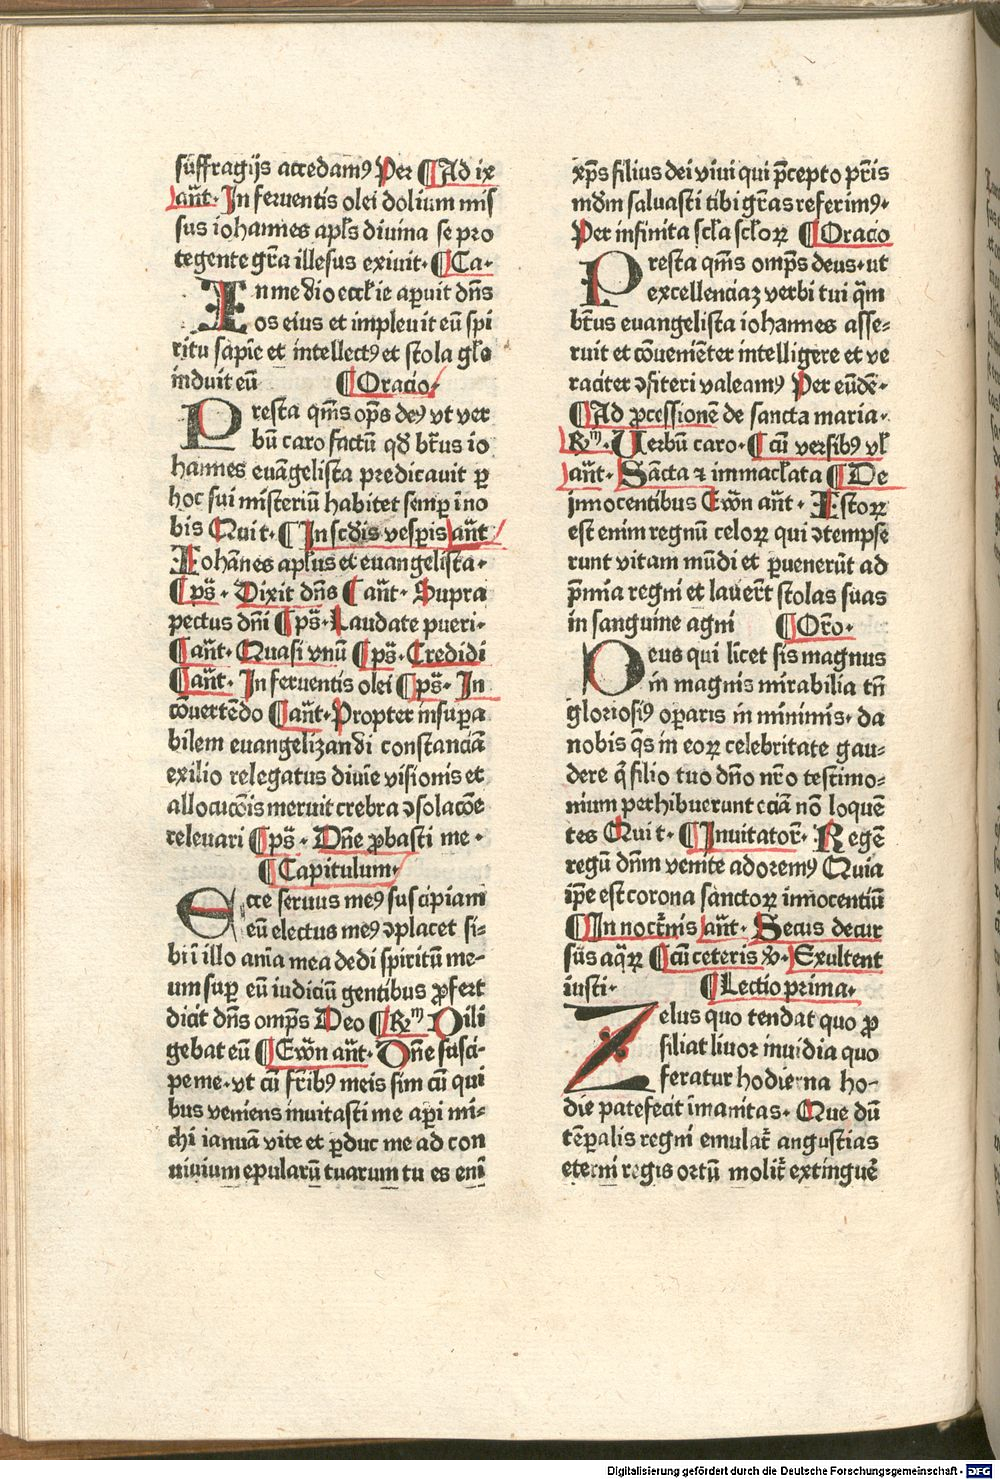 suffragijs accedamꝰ Per ¶ Ad ix
añt· In feruentis olei dolium mis
sus iohannes apl̃s diuina se pro
tegente gr̃a illesus exiuit· ¶ Ca·
In medio eccl̃ie aperuit dñs
os eius et impleuit eũ spi
ritu sapiẽ et intellectꝰ et stola glo
induit eũ ¶ Oracio·
Presta qm̃s op̃s deꝰ vt ver
bũ caro factũ qđ bt̃us io
hannes euãgelista predicauit ꝑ
hoc sui misteriũ habitet semꝑ ĩ no
bis Qui t· ¶ In scd̃is vesꝑis añt
Iohãnes apl̃us et euangelista·
¶ pš· Dixit dñs ¶ añt· Supra
pectus dñi ¶ pš· Laudate pueri·
¶ añt· Quasi vnũ ¶ pš· Credidi
¶ añt· In feruentis olei ¶ pš· In
cõuertẽdo ¶ añt· Propter insuꝑa
bilem euangelizandi constanciã
exilio relegatus diuiẽ visionis et
allocucõis meruit crebra ↄsolacõe
releuari ¶ pš· Dñe ꝓbasti me·
¶ Capitulum·
Ecce seruus meꝰ suscipiam
eũ electus meꝰ ↄplacet si⸗
bi ĩ illo anĩa mea dedi spiritũ me⸗
um suꝑ eũ iudiciũ gentibus ꝓfert
dicit dñs omp̃s Deo ¶ Rm̃ Dili
gebat eũ ¶ Ewñ añt· Dñe susci⸗
pe me· vt cũ fr̃ibꝰ meis sim cũ qui
bus veniens inuitasti me aꝑi mi⸗
chi ianuã vite et ꝑduc me ad con
uiuium epularũ tuarum tu es enĩ
xp̃s filius dei viui qui p̃cepto pr̃is
mđm saluasti tibi gr̃as referimꝰ·
Per infinita scl̃a scl̃oꝝ ¶ Oracio
Presta qm̃s omp̃s deus· ut
excellenciaʒ verbi tui q̃m
bt̃us euangelista iohannes asse⸗
ruit et cõueniẽter intelligere et ve
raciter ↄfiteri valeamꝰ Per eũdẽ·
¶ Ad ꝓcessionẽ de sancta maria·
Rm̃· Uerbũ caro· ¶ cũ versibꝰ vl̃
añt· Sãcta ⁊ immacl̃ata ¶ De
innocentibus Ewñ añt· Istoꝝ
est enim regnũ celoꝝ qui ↄtempse
runt vitam mũdi et ꝑuenerũt ad
p̃mia regni et lauer̃t stolas suas
in sanguine agni ¶ Or̃o·
Deus qui licet sis magnus
in magnis mirabilia tñ
gloriosiꝰ oꝑaris in minimis· da
nobis q̃s in eoꝝ celebritate gau⸗
dere q̃ filio tuo dño nr̃o testimo⸗
nium perhibuerunt eciã nõ loquẽ
tes Qui t· ¶ Inuitator̃· Regẽ
regũ dñm venite adoremꝰ Quia
ip̃e est corona sanctoꝝ innocentiũ
¶ In noct̃nis añt· Secus decur
sũs aq̃ꝝ ¶ cũ ceteris ꝛc· Exultent
iusti· ¶ Lectio prima·
Zelus quo tendat quo ꝓ
siliat liuor inuidia quo
feratur hodierna ho⸗
die patefecit ĩmanitas· Que dũ
tẽꝑalis regni emulat̃ angustias
eterni regis ortũ molit̃ extinguẽ
Digitalisierung gefördert durch die Deutsche Forschungsgemeinschaft - DFG